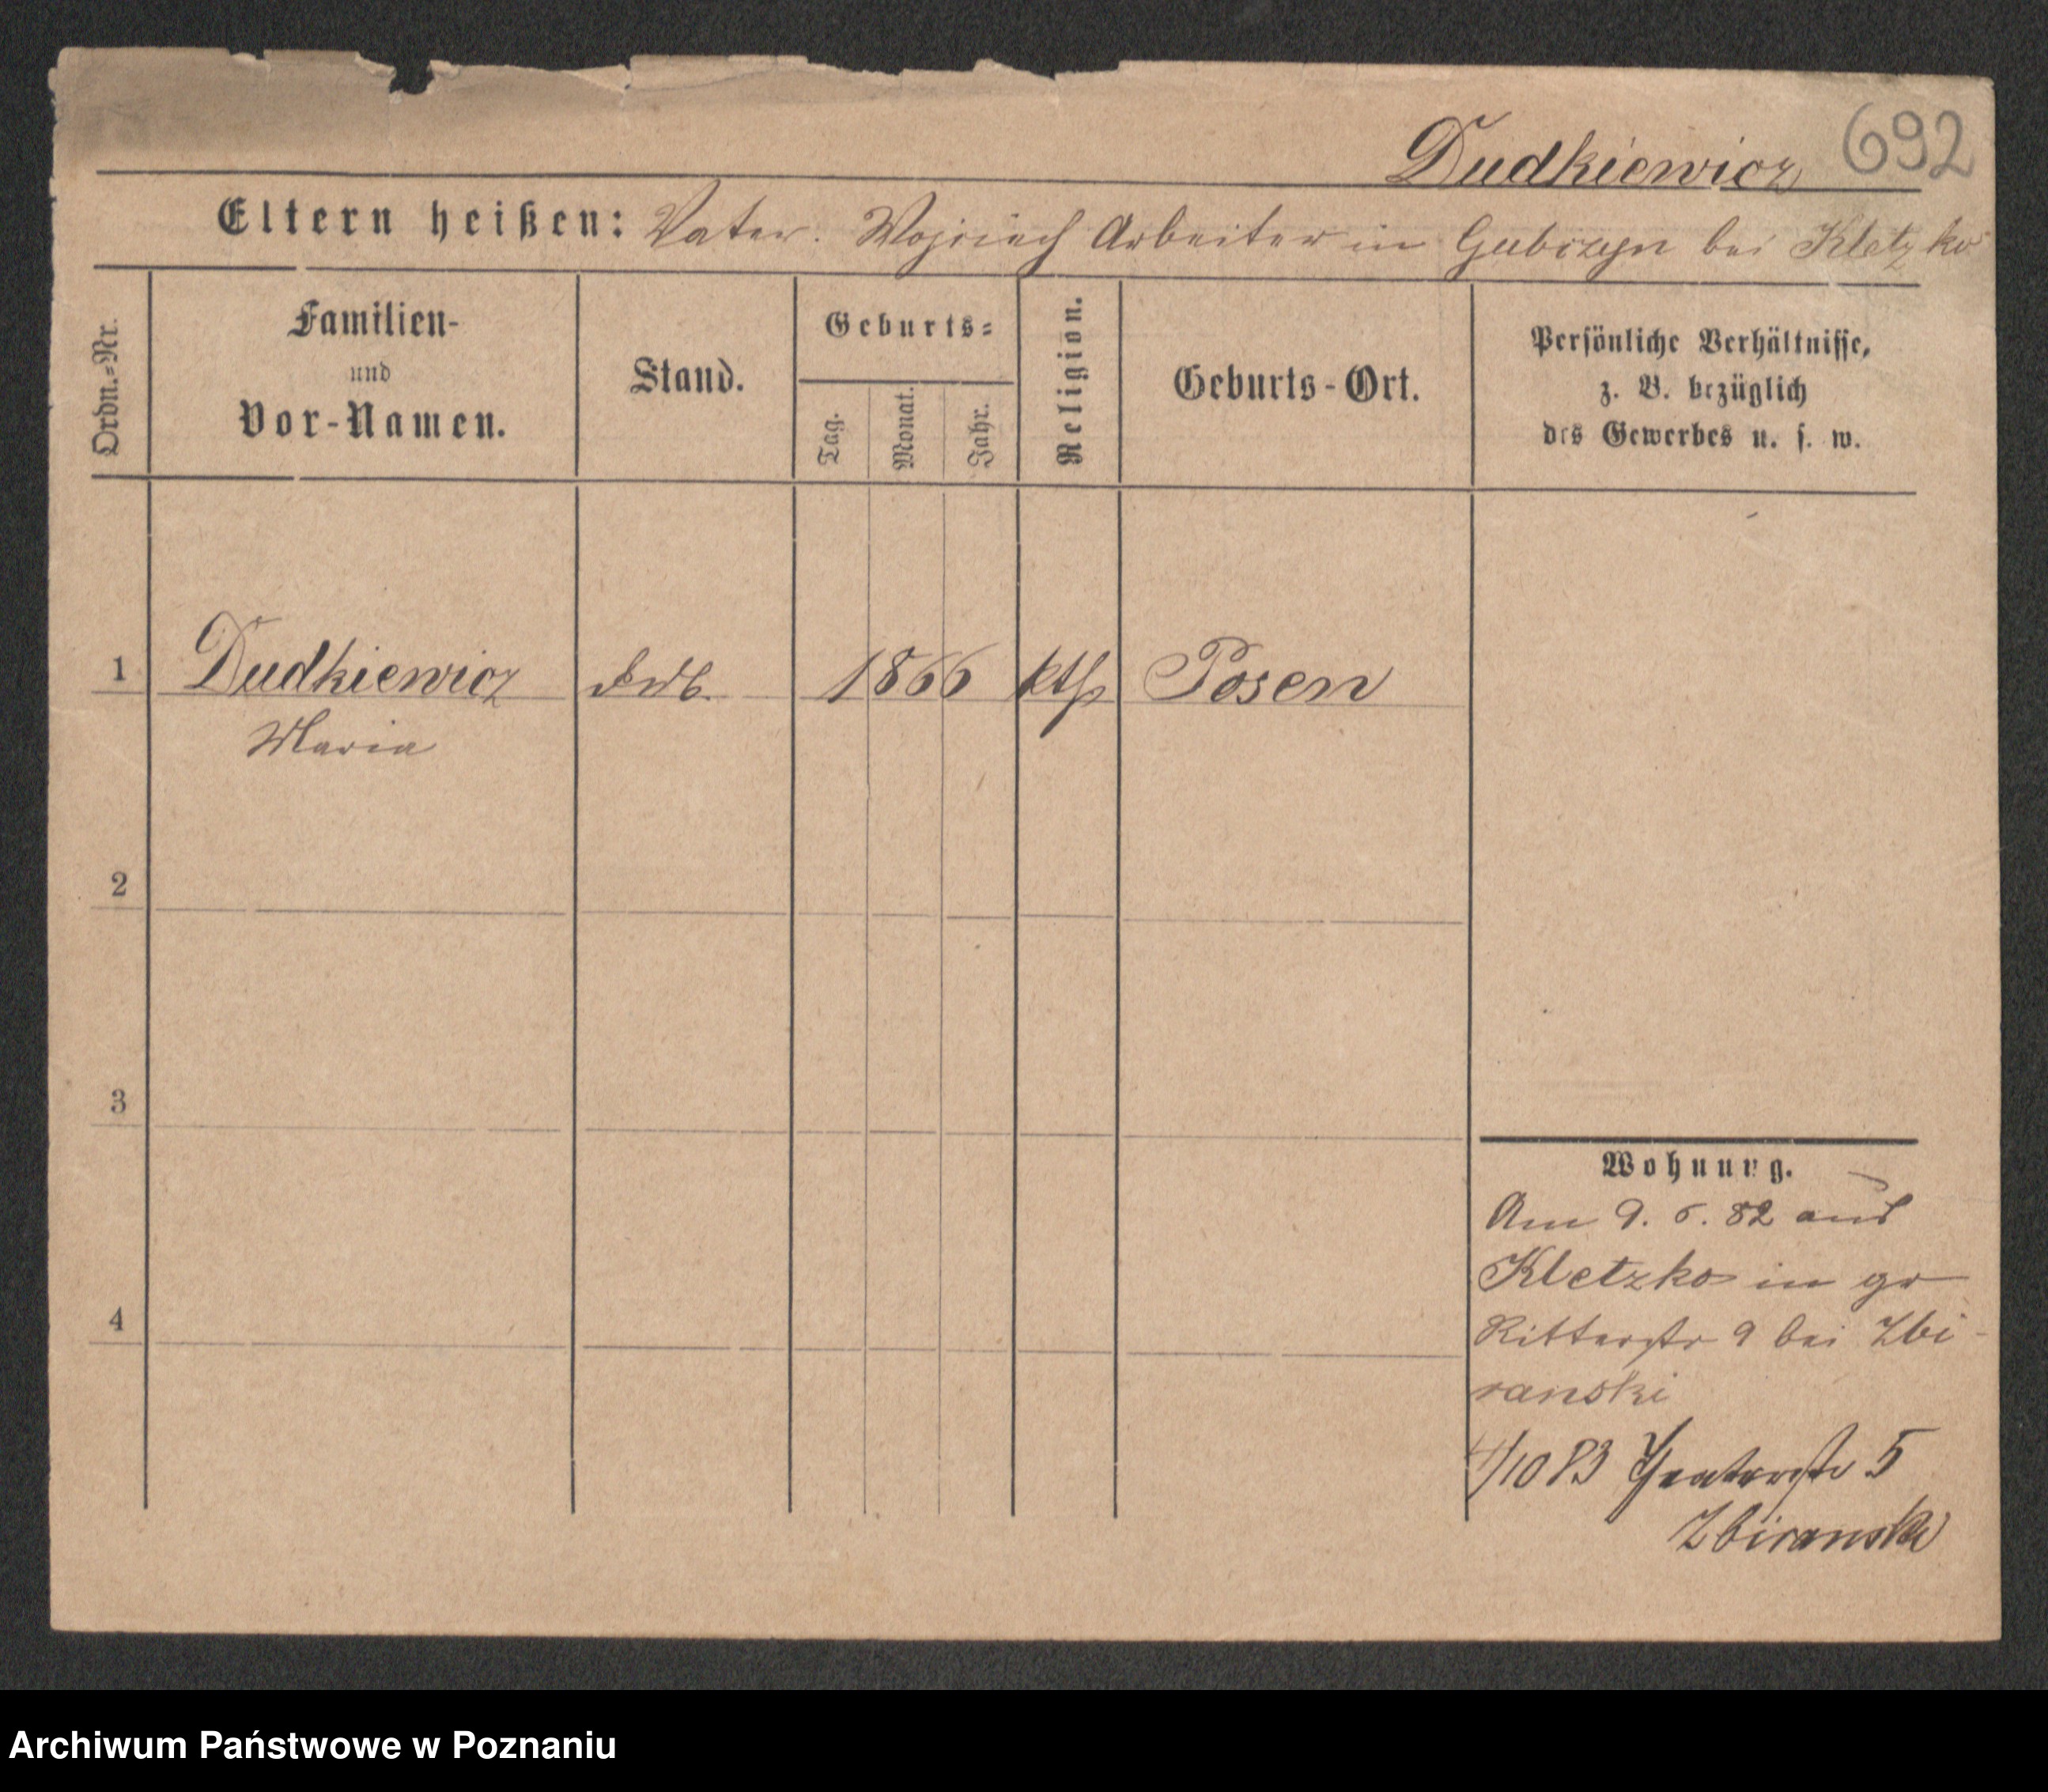 692
Dudkiewicz
Eltern heißen: Vater. Wojciech Arbeiter in bei Kletzko
Ordn.-Nr.
Familien-
und
Vor-Namen.
Stand.
Geburts-
Tag.
Monat.
Jahr.
Religion.
Geburts-Ort.
Persönliche Verhältnisse,
z. B. bezüglich
des Gewerbes u. s. w.
1 Dudkiewicz 1866 kth Posen
Maria
2
3
4
Wohnung.
Am 9. 6. 82 aus
Kletzko in gr
Ritterstr 9 bei Zbi-
ranski
/10 83 5
Zbiranski
Archiwum Państwowe w Poznaniu